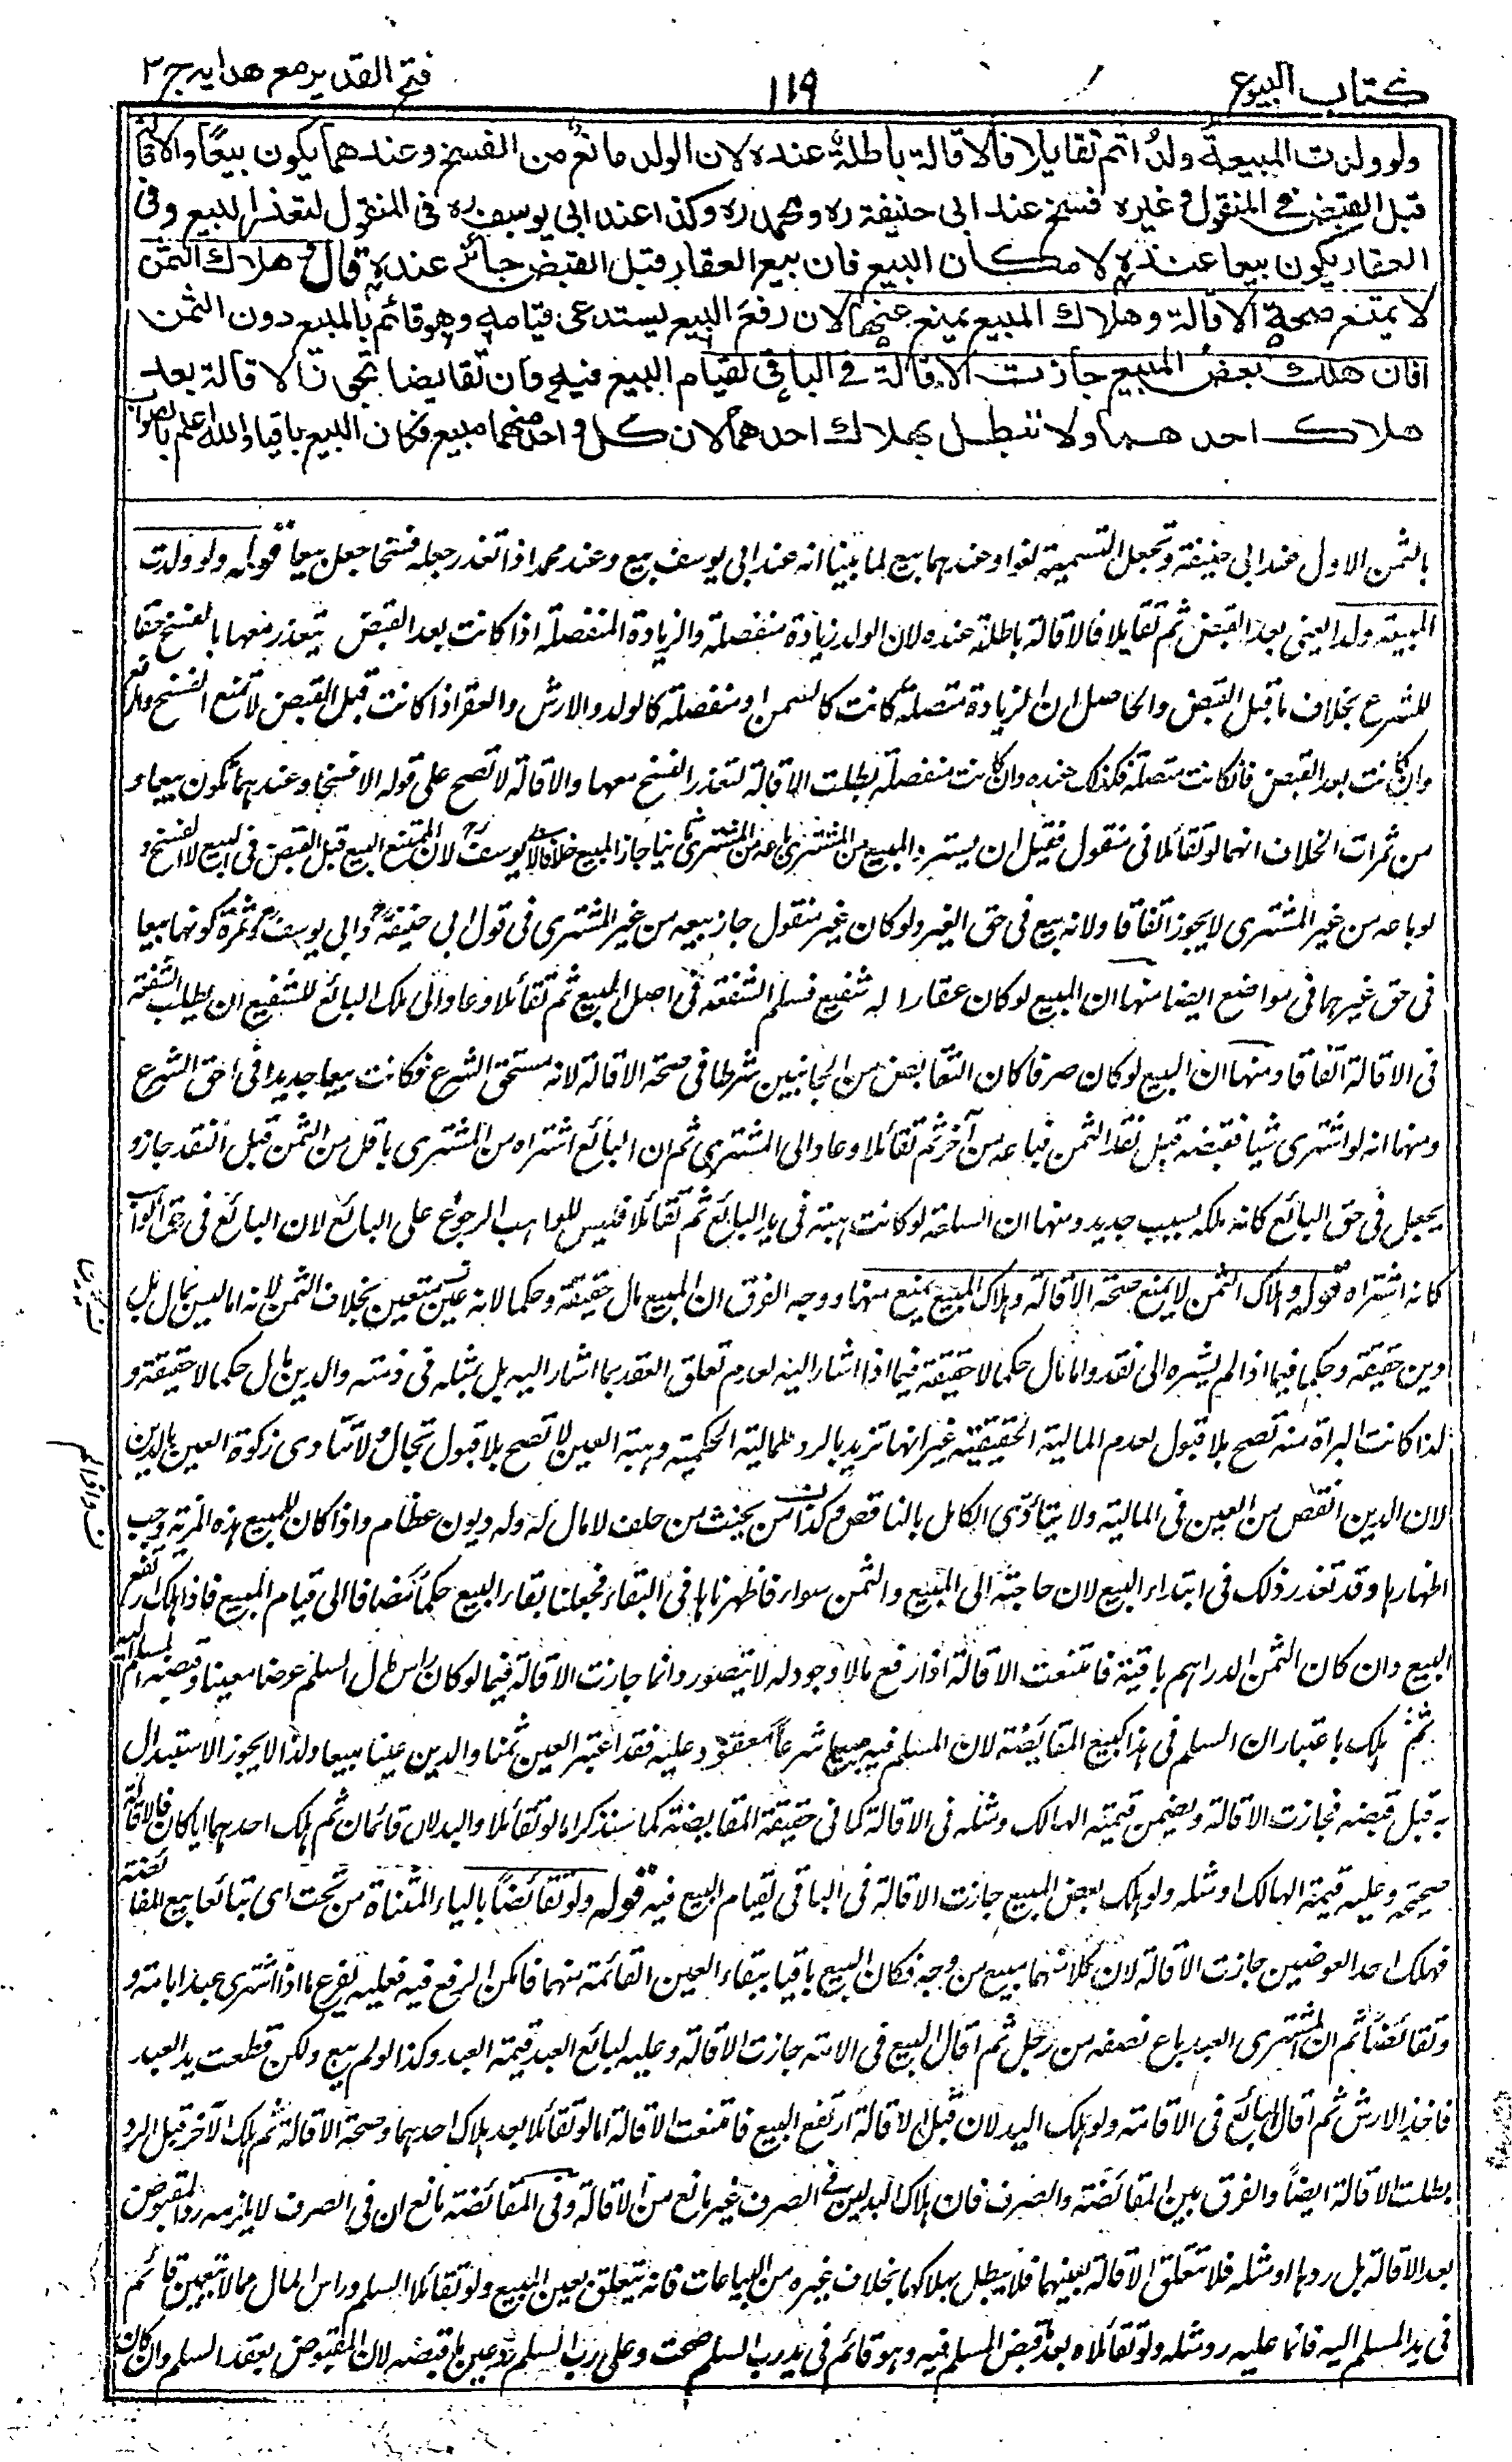 كتاب البيوع ١١٩ فتح القدير مع هدايه ج ٣
ولو ولدت المبيعة ولدا ثم تقايلا فالاقالة باطلة عنده لان الولد مانع من الفسخ وعندهما يكون بيعا والاقالة
قبل القبض في المنقول وغيره فسخ عند ابى حنيفة ره ومحمد ره وكذا عند ابى يوسف ره فى المنقول لتعذر البيع وفى
العقار يكون بيعا عنده لامكان البيع فان بيع العقار قبل القبض جائز عنده قال وهلاك الثمن
لا يمنع صحة الاقالة وهلاك المبيع يمنع عنها لان رفع البيع يستدعى قيامه وهو قائم بالمبيع دون الثمن
فان هلك بعض المبيع جازت الاقالة فى الباقى لقيام البيع فيه وان تقايضا تجوز الاقالة بعد
هلاك احدهما ولا تبطل بهلاك احدهما لان كل واحد منهما مبيع فكان البيع باقيا والله اعلم بالصواب
بالثمن الاول عند ابى حنيفة وتجعل التسمية لغوا وعندهما بيع لما بينا انه عند ابى يوسف بيع وعند محمد اذا تعذر جعله فسخا جعل بيعا قوله ولو ولدت
المبيعة ولدا يعنى بعد القبض ثم تقايلا فالاقالة باطلة عنده لان الولد زيادة منفصلة والزيادة المنفصلة اذا كانت بعد القبض يتعذر معها الفسخ حقا
للشرع بخلاف ما قبل القبض والحاصل ان الزيادة متصلة كانت كالسمن او منفصلة كالولد والارش والعقر اذا كانت قبل القبض لا تمنع الفسخ والرفع
وان كانت بعد القبض فان كانت متصلة فكذلك عنده وان كانت منفصلة بطلت الاقالة لتعذر الفسخ معها والاقالة لا تصح على قوله الا فسخا وعندهما تكون بيعا و
من ثمرات الخلاف انهما لو تقائلا فى منقول فقبل ان يسترد المبيع من المشترى باعه من المشترى ثانيا جاز البيع خلافا لابى يوسف لان الممتنع البيع قبل القبض فى البيع لا الفسخ و
لو باعه من غير المشترى لا يجوز اتفاقا ولانه بيع فى حق الغير ولو كان غير منقول جاز بيعه من غير المشترى فى قول ابى حنيفة وابى يوسف وثمرة كونها بيعا
فى حق غيرهما فى مواضع ايضا منها ان المبيع لو كان عقارا له شفيع فسلم الشفعة فى اصل البيع ثم تقائلا وعاد الى ملك البائع للشفيع ان يطلب الشفعة
فى الاقالة اتفاقا ومنها ان البيع لو كان صرفا كان التقابض من الجانبين شرطا فى صحة الاقالة لانه مستحق الشرع فكانت بيعا جديدا فى حق الشرع
ومنها انه لو اشترى شيا فقبضه قبل نقد الثمن فباعه من آخر ثم تقائلا وعاد الى المشترى ثم ان البائع اشتراه من المشترى باقل من الثمن قبل النقد جاز و
يجعل فى حق البائع كانه ملكه بسبب جديد ومنها ان السلعة لو كانت هبة فى يد البائع ثم تقائلا فليس للواهب الرجوع على البائع لان البائع فى حق الواهب
كانه اشتراه قوله وهلاك الثمن لا يمنع صحة الاقالة وهلاك المبيع يمنع منها ووجه الفرق ان المبيع مال حقيقة وحكما لانه عين متعين بخلاف الثمن لانه اما ليس بمال بل
دين حقيقة وحكما فيما اذا لم يشره الى نقد واما مال حكما لا حقيقة فيما اذا اشار اليه لعدم تعلق العقد بما اشار اليه بل بمثله فى ذمته والدين مال حكما لا حقيقة و
لذا كانت البراة منه تصح بلا قبول لعدم المالية الحقيقية غير انها ترتد بالرد للمالية الحكمية وهبة العين لا تصح بلا قبول بحال ولا تتادى زكوة العين بالدين
لان الدين انقص من العين فى المالية ولا يتأدى الكامل بالناقص وكذا لم يحنث من حلف لا مال له وله ديون عظام واذا كان للمبيع هذه المزية وجب
اظهارها وقد تعذر ذلك فى ابتداء البيع لان حاجته الى المبيع والثمن سواء فاظهرناها فى البقاء فجعلنا بقاء البيع حكما مضافا الى قيام المبيع فاذا هلك ارتفع
البيع وان كان الثمن الدراهم باقية فامتنعت الاقالة اذ رفع ما لا وجود له لا يتصور وانما جازت الاقالة فيما لو كان راس مال السلم عرضا معينا وقبضه المسلم اليه
ثم هلك باعتبار ان السلم فى هذا كبيع المقائضة لان المسلم فيه مبيع شرعا معقود عليه فقد اعتبر العين ثمنا والدين عينا مبيعا ولذا لا يجوز الاستبدال
به قبل قبضه فجازت الاقالة ويضمن قيمة الهالك ومثله فى الاقالة كما فى حقيقة المقايضة كما سنذكر اما لو تقائلا والبدلان قائمان ثم هلك احدهما ايا كان فالاقالة
صحيحة وعليه قيمة الهالك او مثله ولو هلك بعض المبيع جازت الاقالة فى الباقى لقيام البيع فيه قوله ولو تقائضا بالياء المثناة من تحت اى تبائعا بيع المقائضة
فهلك احد العوضين جازت الاقالة لان كلا منهما مبيع من وجه فكان البيع باقيا ببقاء العين القائمة منهما فامكن الرفع فيه فعليه يفرع ما اذا اشترى عبدا بامة و
وتقائضا ثم ان المشترى العبد باع نصفه من رجل ثم اقال البيع فى الامة جازت الاقالة وعليه لبائع العبد قيمة العبد وكذا لو لم يبع ولكن قطعت يد العبد
فاخذ الارش ثم اقال البائع فى الاقامة ولو هلك البدلان قبل الاقالة ارتفع البيع فامتنعت الاقالة اما لو تقائلا بعد هلاك احدهما وصحة الاقالة ثم هلك الآخر قبل الرد
بطلت الاقالة ايضا والفرق بين المقائضة والصرف فان هلاك البدلين فى الصرف غير مانع من الاقالة وفى المقائضة مانع ان فى الصرف لا يلزمه رد المقبوض
بعد الاقالة بل ردها او مثله فلا تتعلق الاقالة بعينهما فلا يبطل بهلاكهما بخلاف غيره من البياعات فانه يتعلق بعين المبيع ولو تقائلا السلم وراس المال مما لا يتعين قائم
فى يد المسلم اليه فانما عليه رد مثله ولو تقائلاه بعد قبض المسلم فيه وهو قائم فى يد رب السلم صحت وعلى رب السلم رد عين ما قبضه لان المقبوض بعقد السلم وان كان